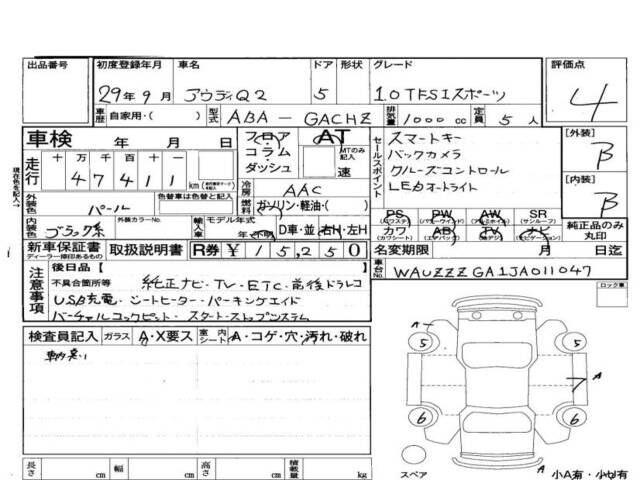 出品番号 初度登録年月 車名 ドア 形状 グレード 評価点
29年9月 アウディQ2 5 1.0TFSIスポーツ 4
車歴 自家用・( ) 型式 ABA-GACHZ 排気量 1000 cc 定員 5人
車検 年 月 日 フロア コラム・ダッシュ AT MTのみ記入 速
セールスポイント スマートキー
バックカメラ
クルーズコントロール
LEDオートライト
[外装] B
[内装] B
走行 十 万 千 百 十 一
47411 km
冷房 AAC
外装色 パール 色替車は色替と記入 燃料 ガソリン・軽油・( )
PS (パワステ) PW (パワーウインド) AW (アルミホイル) SR (サンルーフ)
カワ (カワシート) AB (エアバッグ) TV (地デジ) ナビ (ナビゲーション)
純正品のみ丸印
内装色 ブラック系 外装カラーNo. 輸入車 モデル年式 年・不明 D車・並 右H・左H
新車保証書 ディーラー捺印あるもの 取扱説明書 R券 ¥15,250 名変期限 月 日迄
車台No. WAUZZZGA1JA011047
注意事項 後日品[ ]
不具合箇所等 純正ナビ・TV・ETC・前後ドラレコ
USB充電・シートヒーター・パーキングエイド
バーチャルコックピット・スタートストップシステム
ロック車
検査員記入 ガラス A・X要ス 室内 シート A・コゲ・穴・汚れ・破れ
A
5 5
7 A
6 6
スペア
A
小A有・小U有
長さ cm 幅 cm 高さ cm 積載量 kg
現在色を記入→